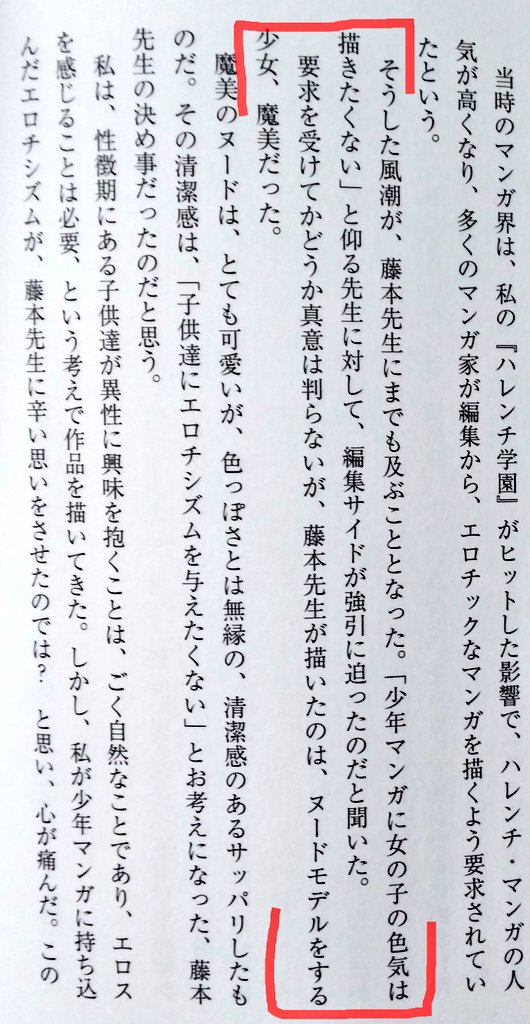 当時のマンガ界は、私の『ハレンチ学園』がヒットした影響で、ハレンチ・マンガの人
気が高くなり、多くのマンガ家が編集から、エロチックなマンガを描くよう要求されてい
たという。
そうした風潮が、藤本先生にまでも及ぶこととなった。「少年マンガに女の子の色気は
描きたくない」と仰る先生に対して、編集サイドが強引に迫ったのだと聞いた。
要求を受けてかどうか真意は判らないが、藤本先生が描いたのは、ヌードモデルをする
少女、魔美だった。
魔美のヌードは、とても可愛いが、色っぽさとは無縁の、清潔感のあるサッパリしたも
のだ。その清潔感は、「子供達にエロチシズムを与えたくない」とお考えになった、藤本
先生の決め事だったのだと思う。
私は、性徴期にある子供達が異性に興味を抱くことは、ごく自然なことであり、エロス
を感じることは必要、という考えで作品を描いてきた。しかし、私が少年マンガに持ち込
んだエロチシズムが、藤本先生に辛い思いをさせたのでは？　と思い、心が痛んだ。この